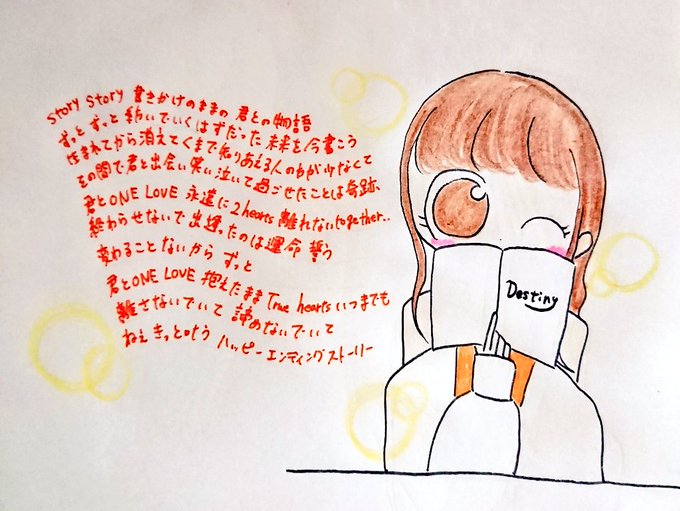 Story Story 書きかけのままの 君との物語
ずっと ずっと 紡いでいくはずだった 未来を今書こう
生まれてから消えてくまで知りあえる人のわずか少なくて
その間で君と出会い笑い泣いて過ごせたことは奇跡、
君とONE LOVE 永遠に 2 hearts 離れないtogether..
終わらせないで 出逢ったのは運命 誓う
変わることないから ずっと
君とONE LOVE 抱えたまま True hearts いつまでも
離さないでいて 諦めないでいて
ねぇ きっと叶う ハッピーエンディングストーリー
Destiny